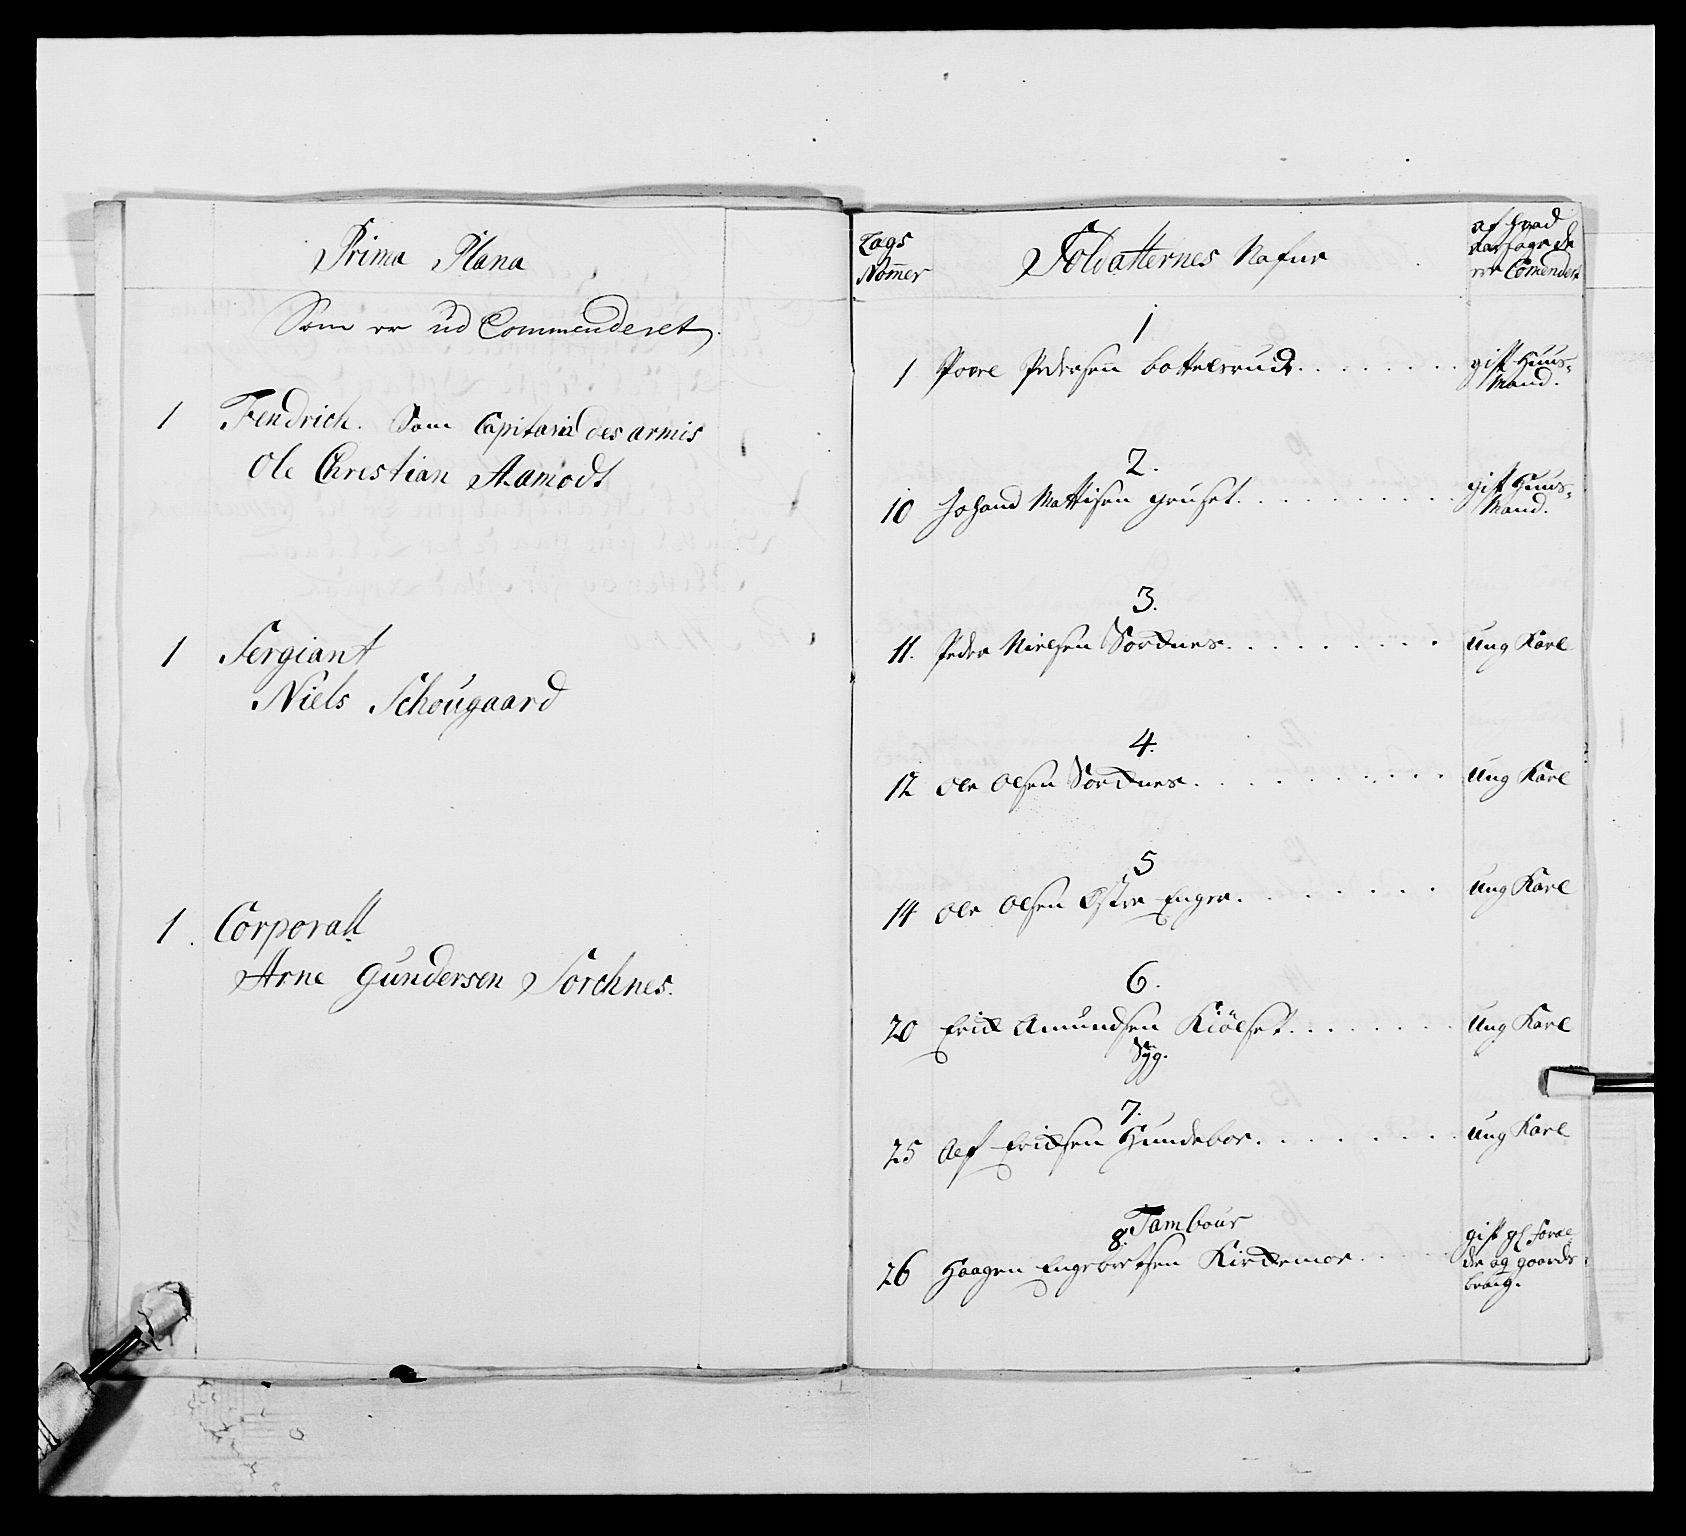 Prima Plana
Som er ud Commenderet
1 Fendrich. Som Capitain des armis
Ole Christian Aamodt
1 Sergiant
Niels Schougaard
1. Corporall
Arne Gundersen Sorchnes.
Lags Soldatternes Nafne af hvad
Nommer
er Comenderet
1
1 Povel Pedersen Bottelsrud gift Huus-
Mand.
2.
10 Johand Mattisen Gruset gift Huus-
Mand.
3.
11. Peder Nielsen Sorknes ung Karl
4.
12 Ole Olsen Sorknes ung Karl
5
14 Ole Olsen Østre Enger ung Karl
6.
20 Erick Amundsen Kiølset ung Karl
Syg.
7.
25 Olf Ericksen Hundeboe ung Karl
8. Tambour
26 Haagen Engvortsen Kirckemoe gift
og gaards
brug.